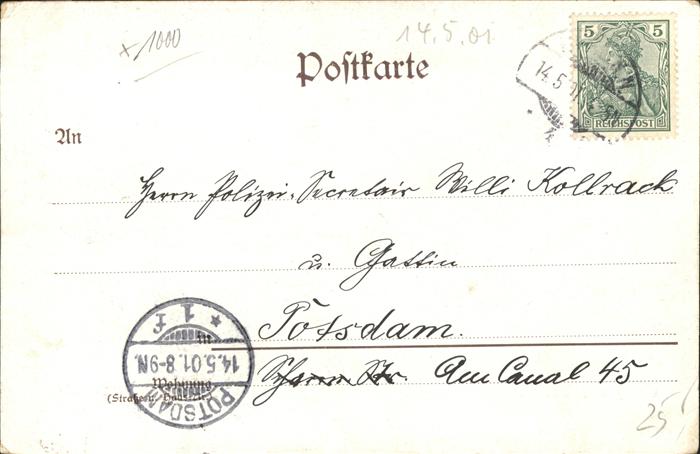 x/1000
14.5.01
Postkarte
5 5
REICHSPOST
14.5.
An
Herrn Polizei-Secretair Willi Kollrack
u. Gattin
in Potsdam.
Am Canal 45
Wohnung
(Straße u. Hausnr.)
* 1 f
14.5.01.8-9N.
POTSDAM
25